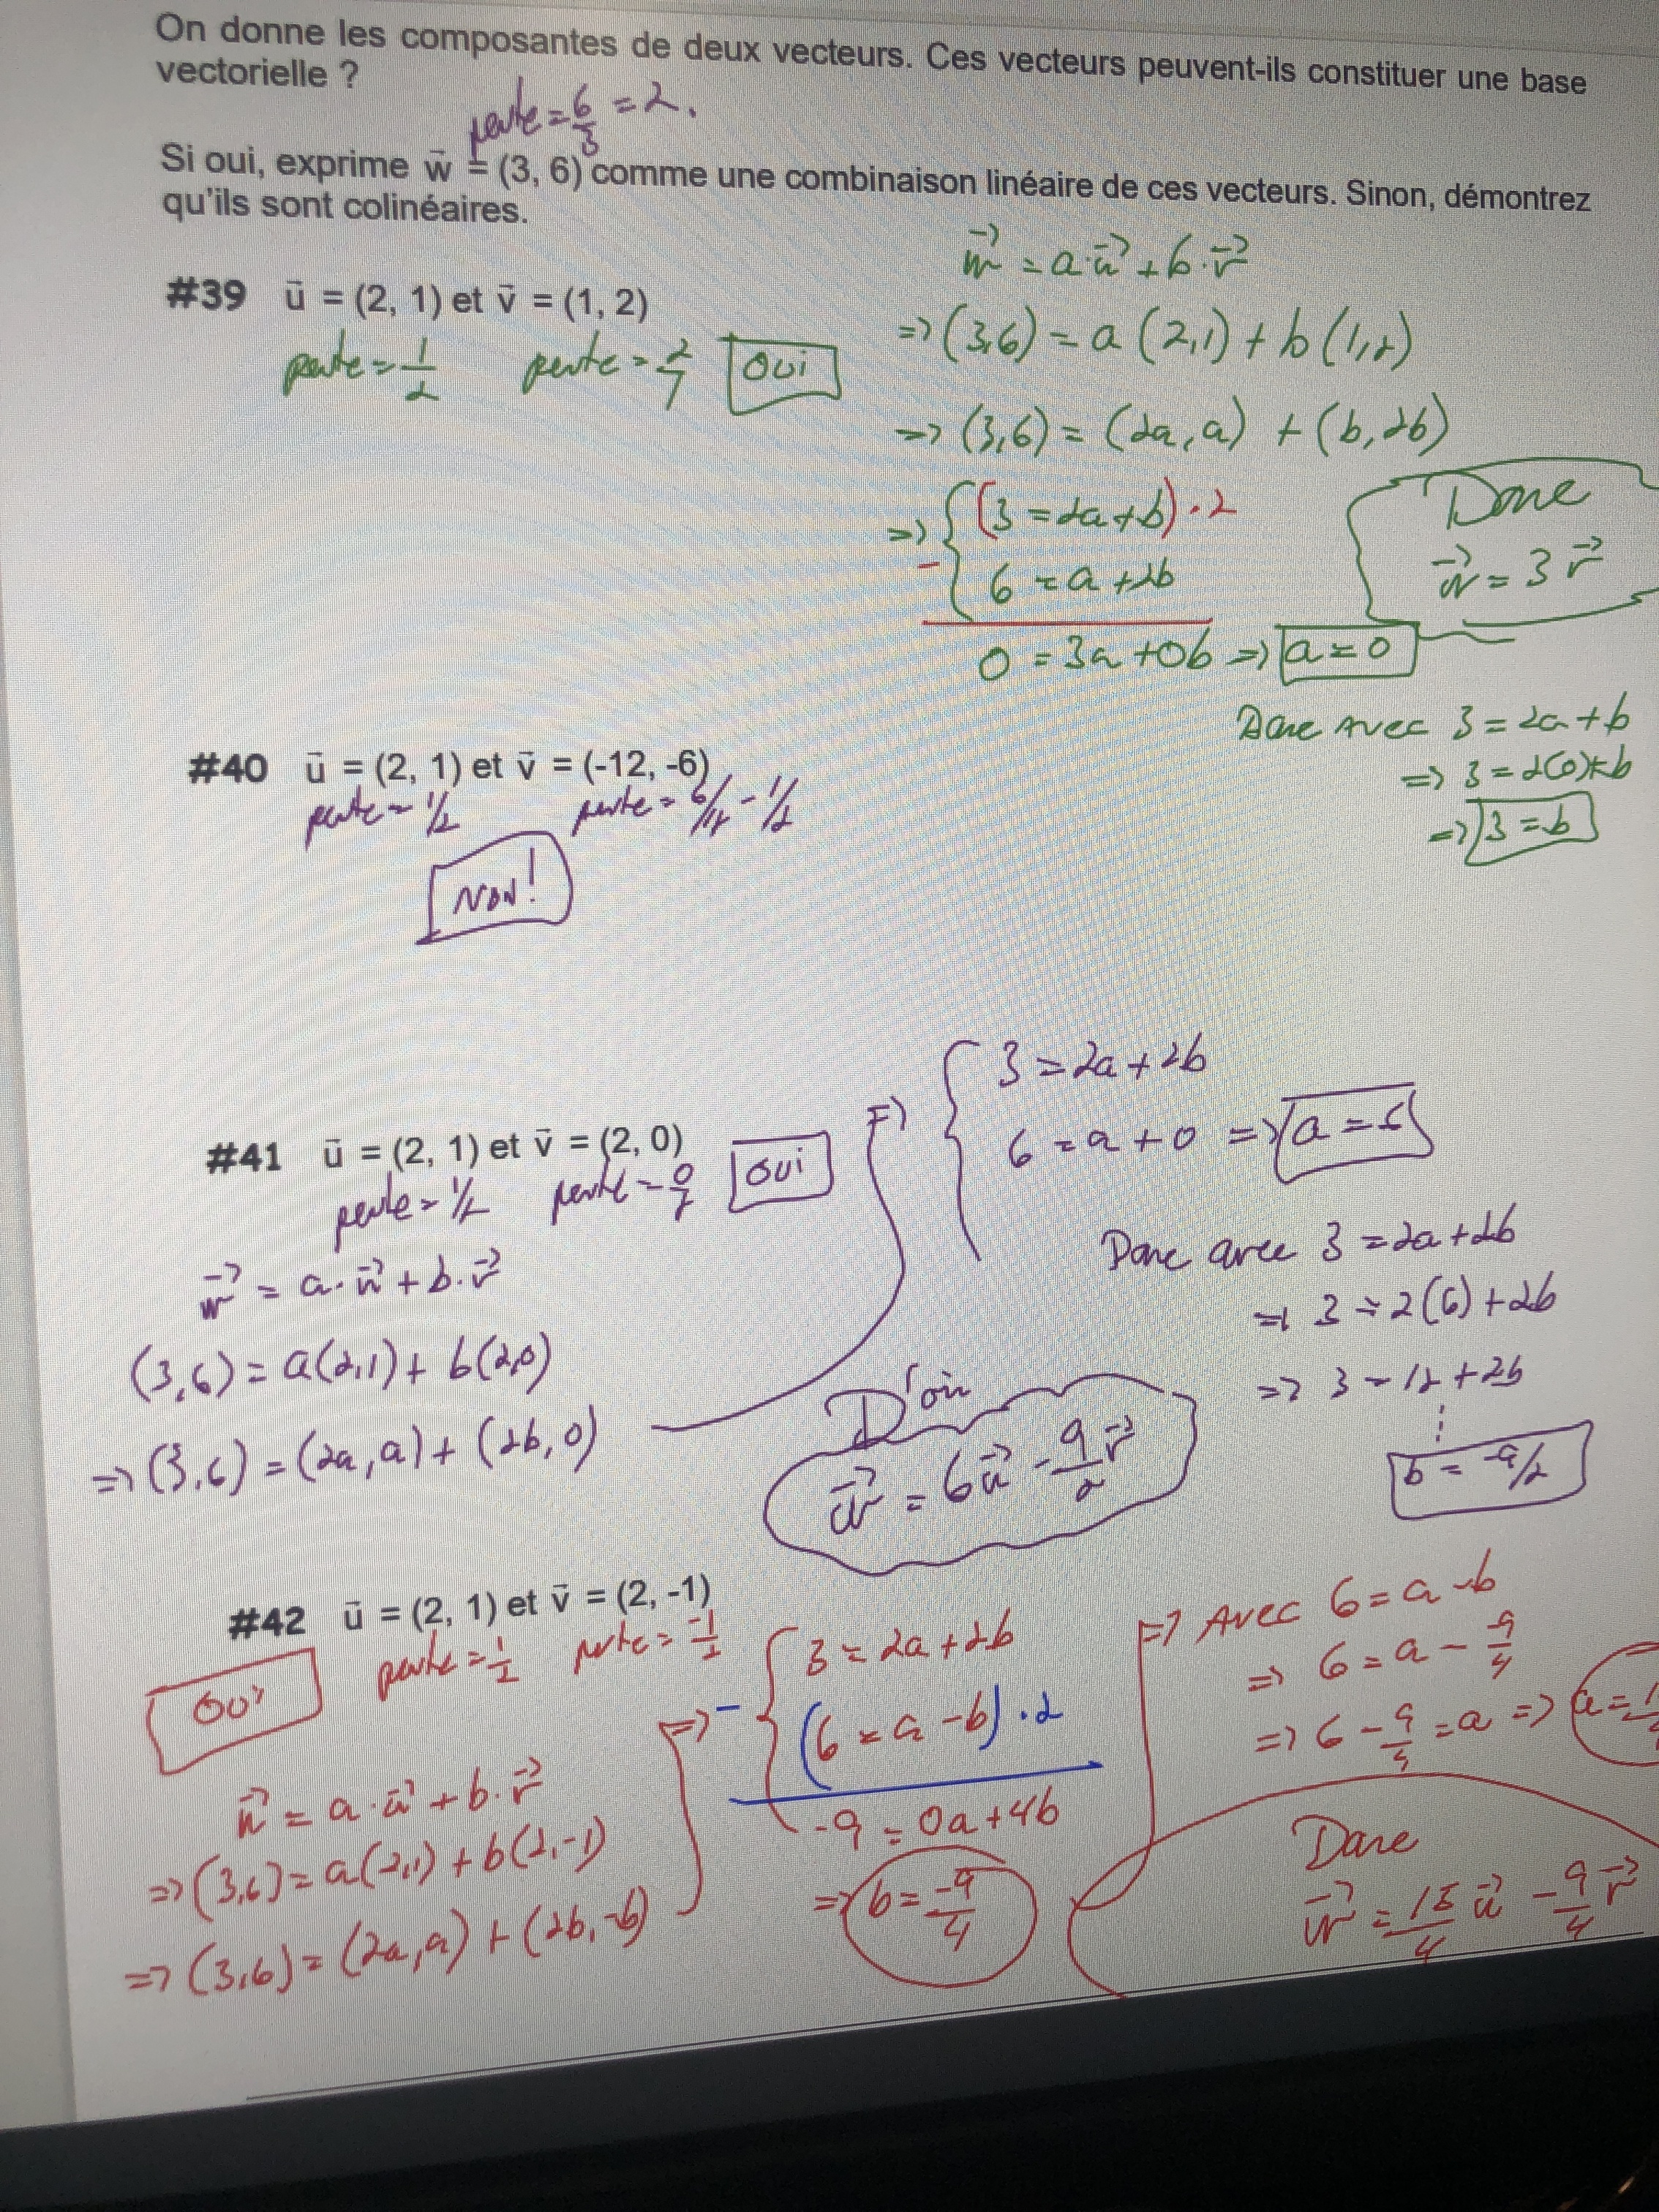 On donne les composantes de deux vecteurs. Ces vecteurs peuvent-ils constituer une base
vectorielle ?
pente = 6/3 = 2.
Si oui, exprime w⃗ = (3, 6) comme une combinaison linéaire de ces vecteurs. Sinon, démontrez
qu'ils sont colinéaires.
w⃗ = a·u⃗ + b·v⃗
#39 u⃗ = (2, 1) et v⃗ = (1, 2)
=> (3,6) = a (2,1) + b (1,2)
pente = 1/2 pente = 2/1 OUI
=> (3,6) = (2a, a) + (b, 2b)
=> { (3 = 2a+b) · 2
- 6 = a + 2b
Donc
w⃗ = 3 v⃗
0 = 3a + 0b => a = 0
Donc avec 3 = 2a + b
=> 3 = 2(0) + b
=> 3 = b
#40 u⃗ = (2, 1) et v⃗ = (-12, -6)
pente = 1/2 pente = 6/12 = 1/2
NON!
#41 u⃗ = (2, 1) et v⃗ = (2, 0)
pente = 1/2 pente = 0/2 OUI
w⃗ = a·u⃗ + b·v⃗
(3,6) = a(2,1) + b(2,0)
=> (3,6) = (2a, a) + (2b, 0)
=> { 3 = 2a + 2b
6 = a + 0 => a = 6
Donc avec 3 = 2a + 2b
=> 3 = 2(6) + 2b
=> 3 = 12 + 2b
b = -9/2
D'où
w⃗ = 6u⃗ - 9/2 v⃗
#42 u⃗ = (2, 1) et v⃗ = (2, -1)
pente = 1/2 pente = -1/2
OUI
w⃗ = a·u⃗ + b·v⃗
=> (3,6) = a(2,1) + b(2,-1)
=> (3,6) = (2a, a) + (2b, -b)
=> - { 3 = 2a + 2b
(6 = a - b) · 2
-9 = 0a + 4b
=> b = -9/4
=> Avec 6 = a - b
=> 6 = a - -9/4
=> 6 - 9/4 = a => a =
Donc
w⃗ = 15/4 u⃗ - 9/4 v⃗